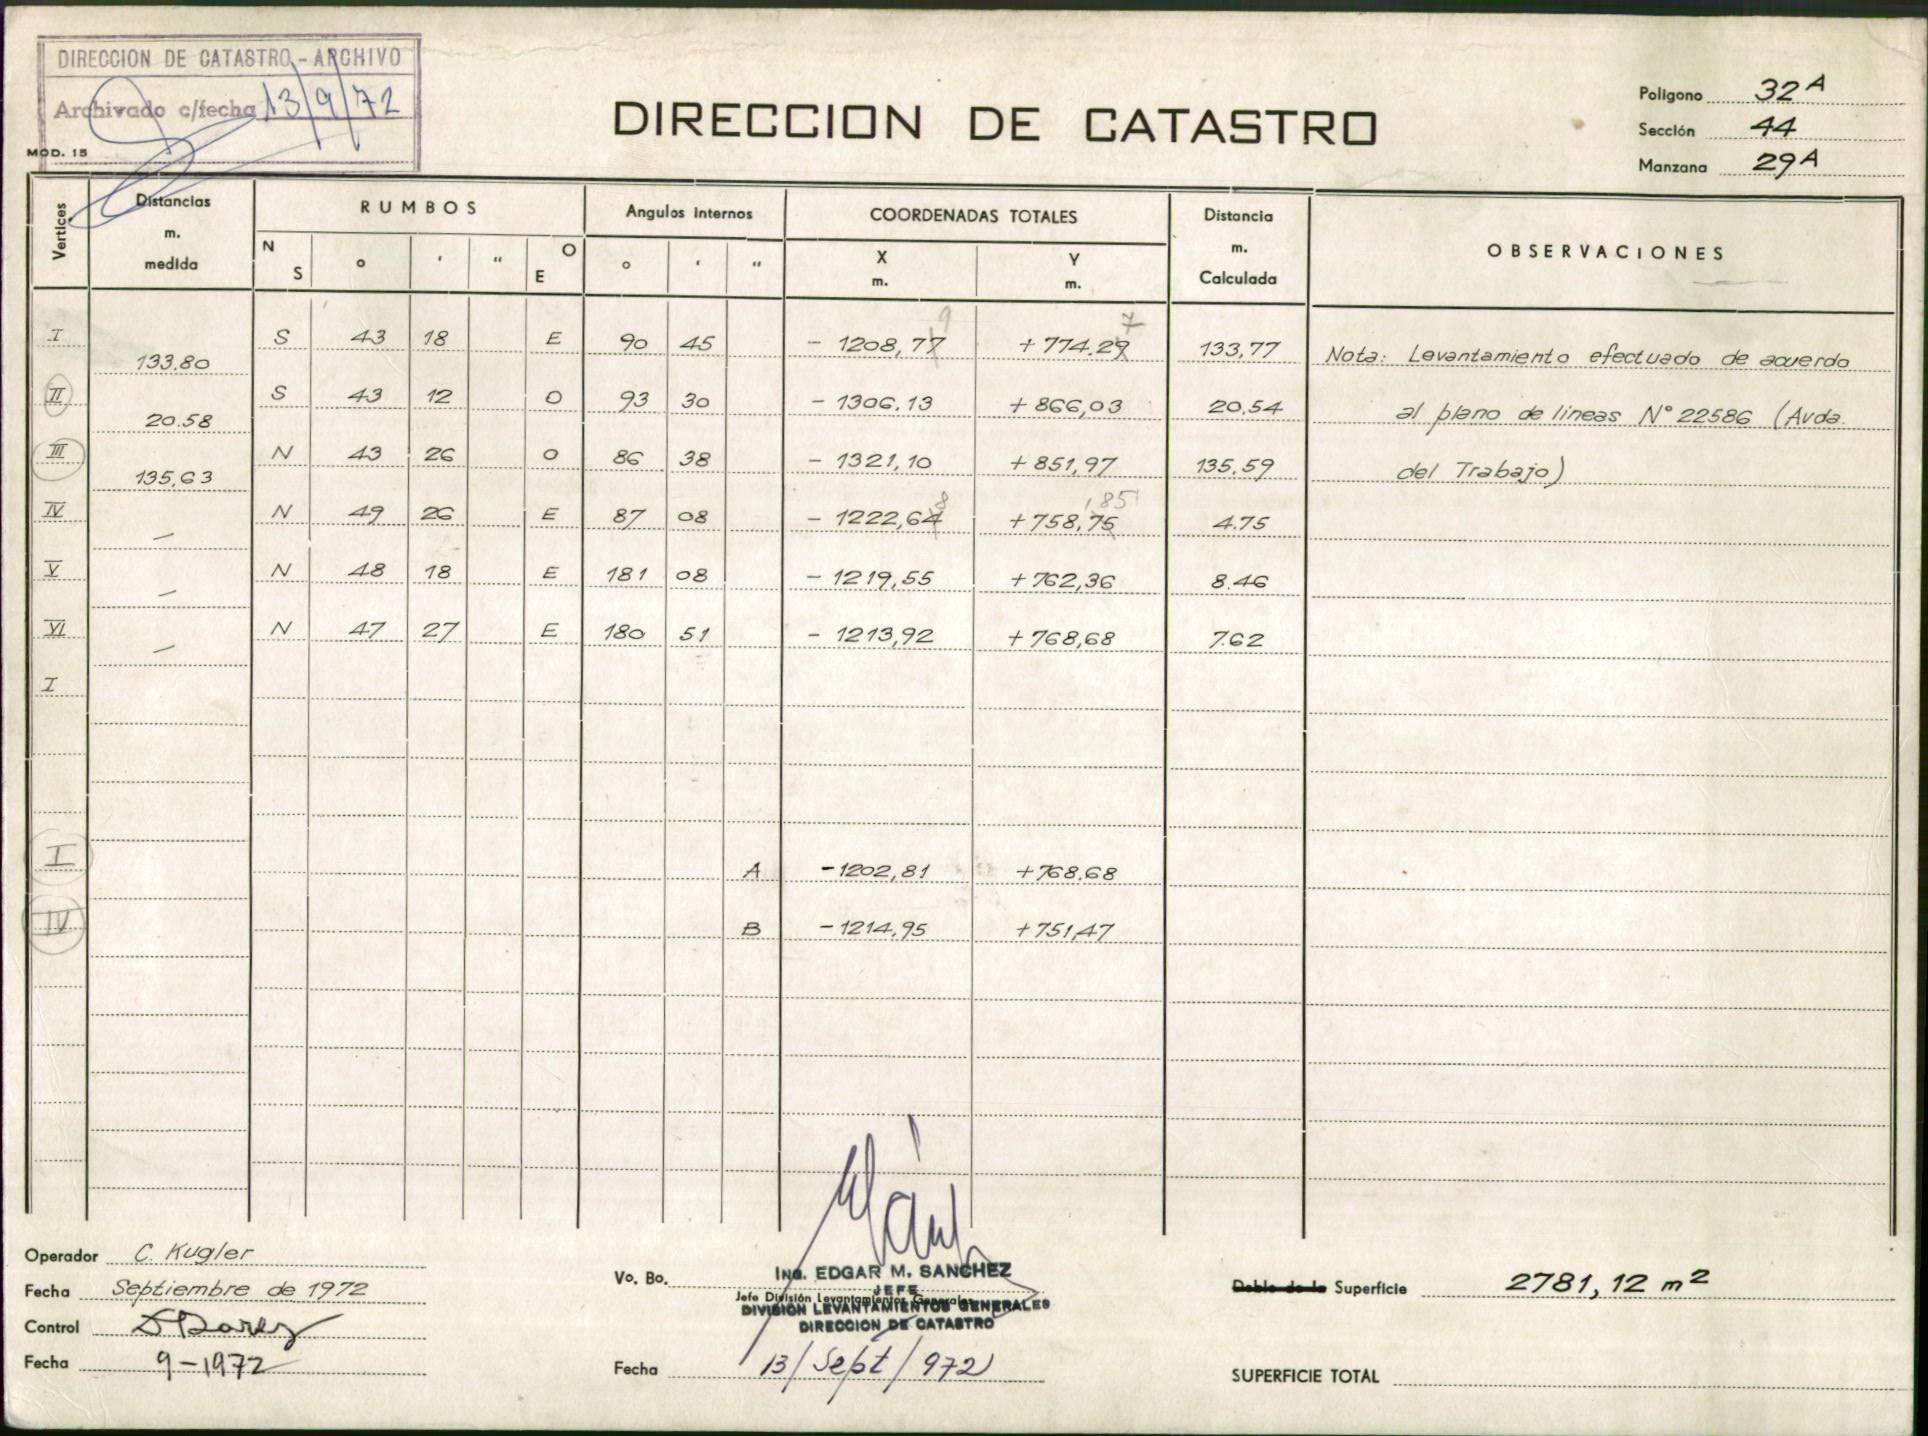 DIRECCION DE CATASTRO - ARCHIVO
Archivado c/fecha 13/9/72
MOD. 15
DIRECCION DE CATASTRO
Poligono 32 A
Sección 44
Manzana 29 A
Vertices Distancias m. medida RUMBOS Angulos Internos COORDENADAS TOTALES Distancia m. Calculada OBSERVACIONES
N S ° ' " O E ° ' " X m. Y m.
9 7
I S 43 18 E 90 45 - 1208,77 + 774.29 133,77 Nota: Levantamiento efectuado de acuerdo
133.80
II S 43 12 O 93 30 - 1306.13 + 866,03 20.54 al plano de lineas N° 22586 (Avda.
20.58
III N 43 26 O 86 38 - 1321,10 + 851,97 135.59 del Trabajo)
135,63
8 ,85
IV N 49 26 E 87 08 - 1222,64 + 758,75 4.75
—
V N 48 18 E 181 08 - 1219,55 + 762,36 8.46
—
VI N 47 27 E 180 51 - 1213,92 + 768,68 7.62
—
I
I A -1202,81 +768.68
IV B -1214,95 +751,47
Operador C. Kugler
Fecha Septiembre de 1972
Control
Fecha 9-1972
Vo. Bo.
Ing. EDGAR M. SANCHEZ
JEFE
Jefe División Levantamientos Generales
DIVISION LEVANTAMIENTOS GENERALES
DIRECCION DE CATASTRO
Fecha 13/Sept/972
Doble de la Superficie 2781,12 m2
SUPERFICIE TOTAL